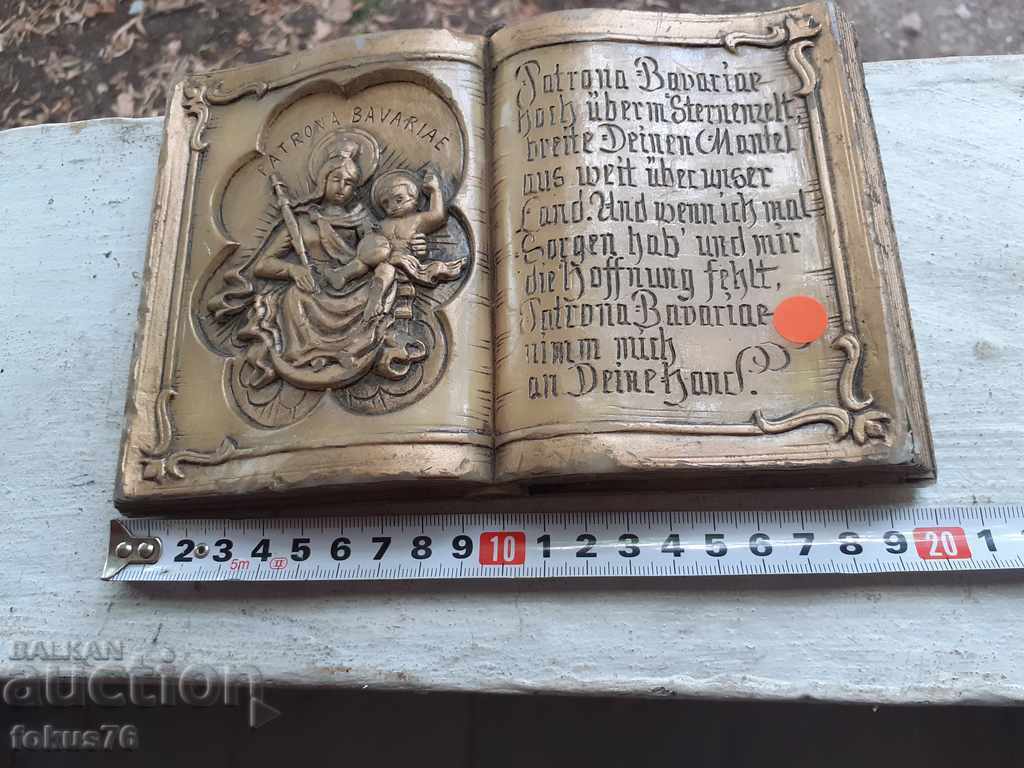 PATRONA BAVARIAE
Patrona Bavariae
hoch überm Sternenzelt,
breite Deinen Mantel
aus weit über unser
Land. Und wenn ich mal
Sorgen hab' und mir
die Hoffnung fehlt,
Patrona Bavariae
nimm mich
an Deine Hand.
2 3 4 5 6 7 8 9 10 1 2 3 4 5 6 7 8 9 20 1
5m
BALKAN
auction
fokus76